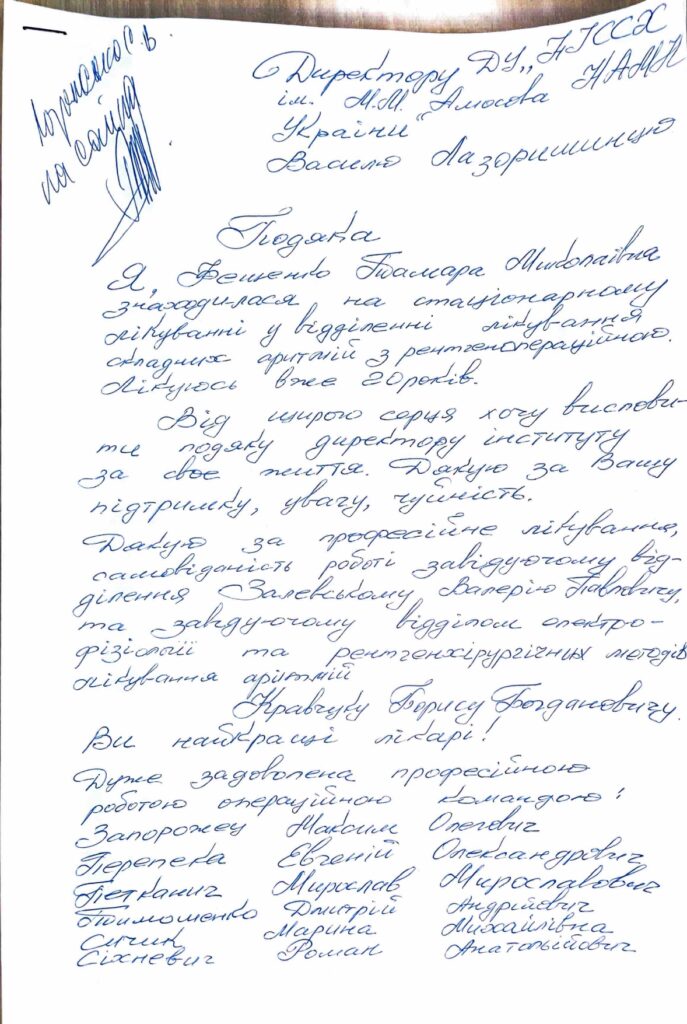 на сайт
Директору ДУ „НІССХ
ім. М.М. Амосова НАМН
України“
Василю Лазоришинцю
Подяка
Я, Фещенко Тамара Миколаївна
знаходилася на стаціонарному
лікуванні у відділенні лікування
складних аритмій з рентгенопераційною.
Лікуюсь вже 20 років.
Від щирого серця хочу вислови-
ти подяку директору інституту
за своє життя. Дякую за Вашу
підтримку, увагу, чуйність.
Дякую за професійне лікування,
самовіданість роботі завідуючому від-
ділення Залевському Валерію Павловичу,
та завідуючому відділом електро-
фізіології та рентгенхірургічних методів
лікування аритмій
Кравчуку Борису Богдановичу.
Ви найкращі лікарі!
Дуже задоволена професійною
роботою операційною командою:
Запорожец Максим Олегович
Перепека Евгеній Олександрович
Петканич Мирослав Мирославович
Тимоменко Дмитрій Андрійович
Сичик Марина Михайлівна
Сіхневич Роман Анатолійович